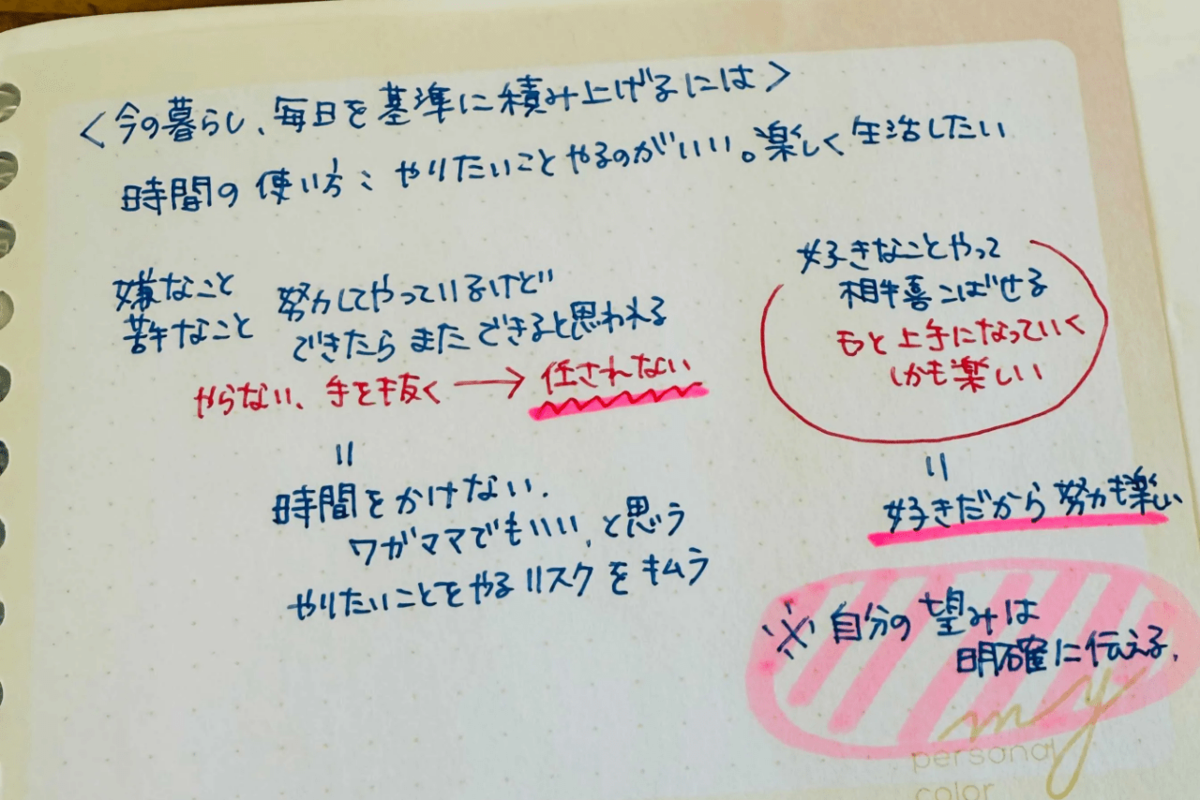 <今の暮らし、毎日を基準に積み上げるには>
時間の使い方：やりたいことやるのがいい。楽しく生活したい
嫌なこと
苦手なこと
努力してやっているけど
できたらまたできると思われる
やらない、手を抜く→任されない
=
時間をかけない.
ワガママでもいい、と思う
やりたいことをやるリスクを
好きなことやって
相手喜こばせる
もと上手になっていく
しかも楽しい
=
好きだから努力も楽しい
※自分の望みは
明確に伝える.
my
personal
color